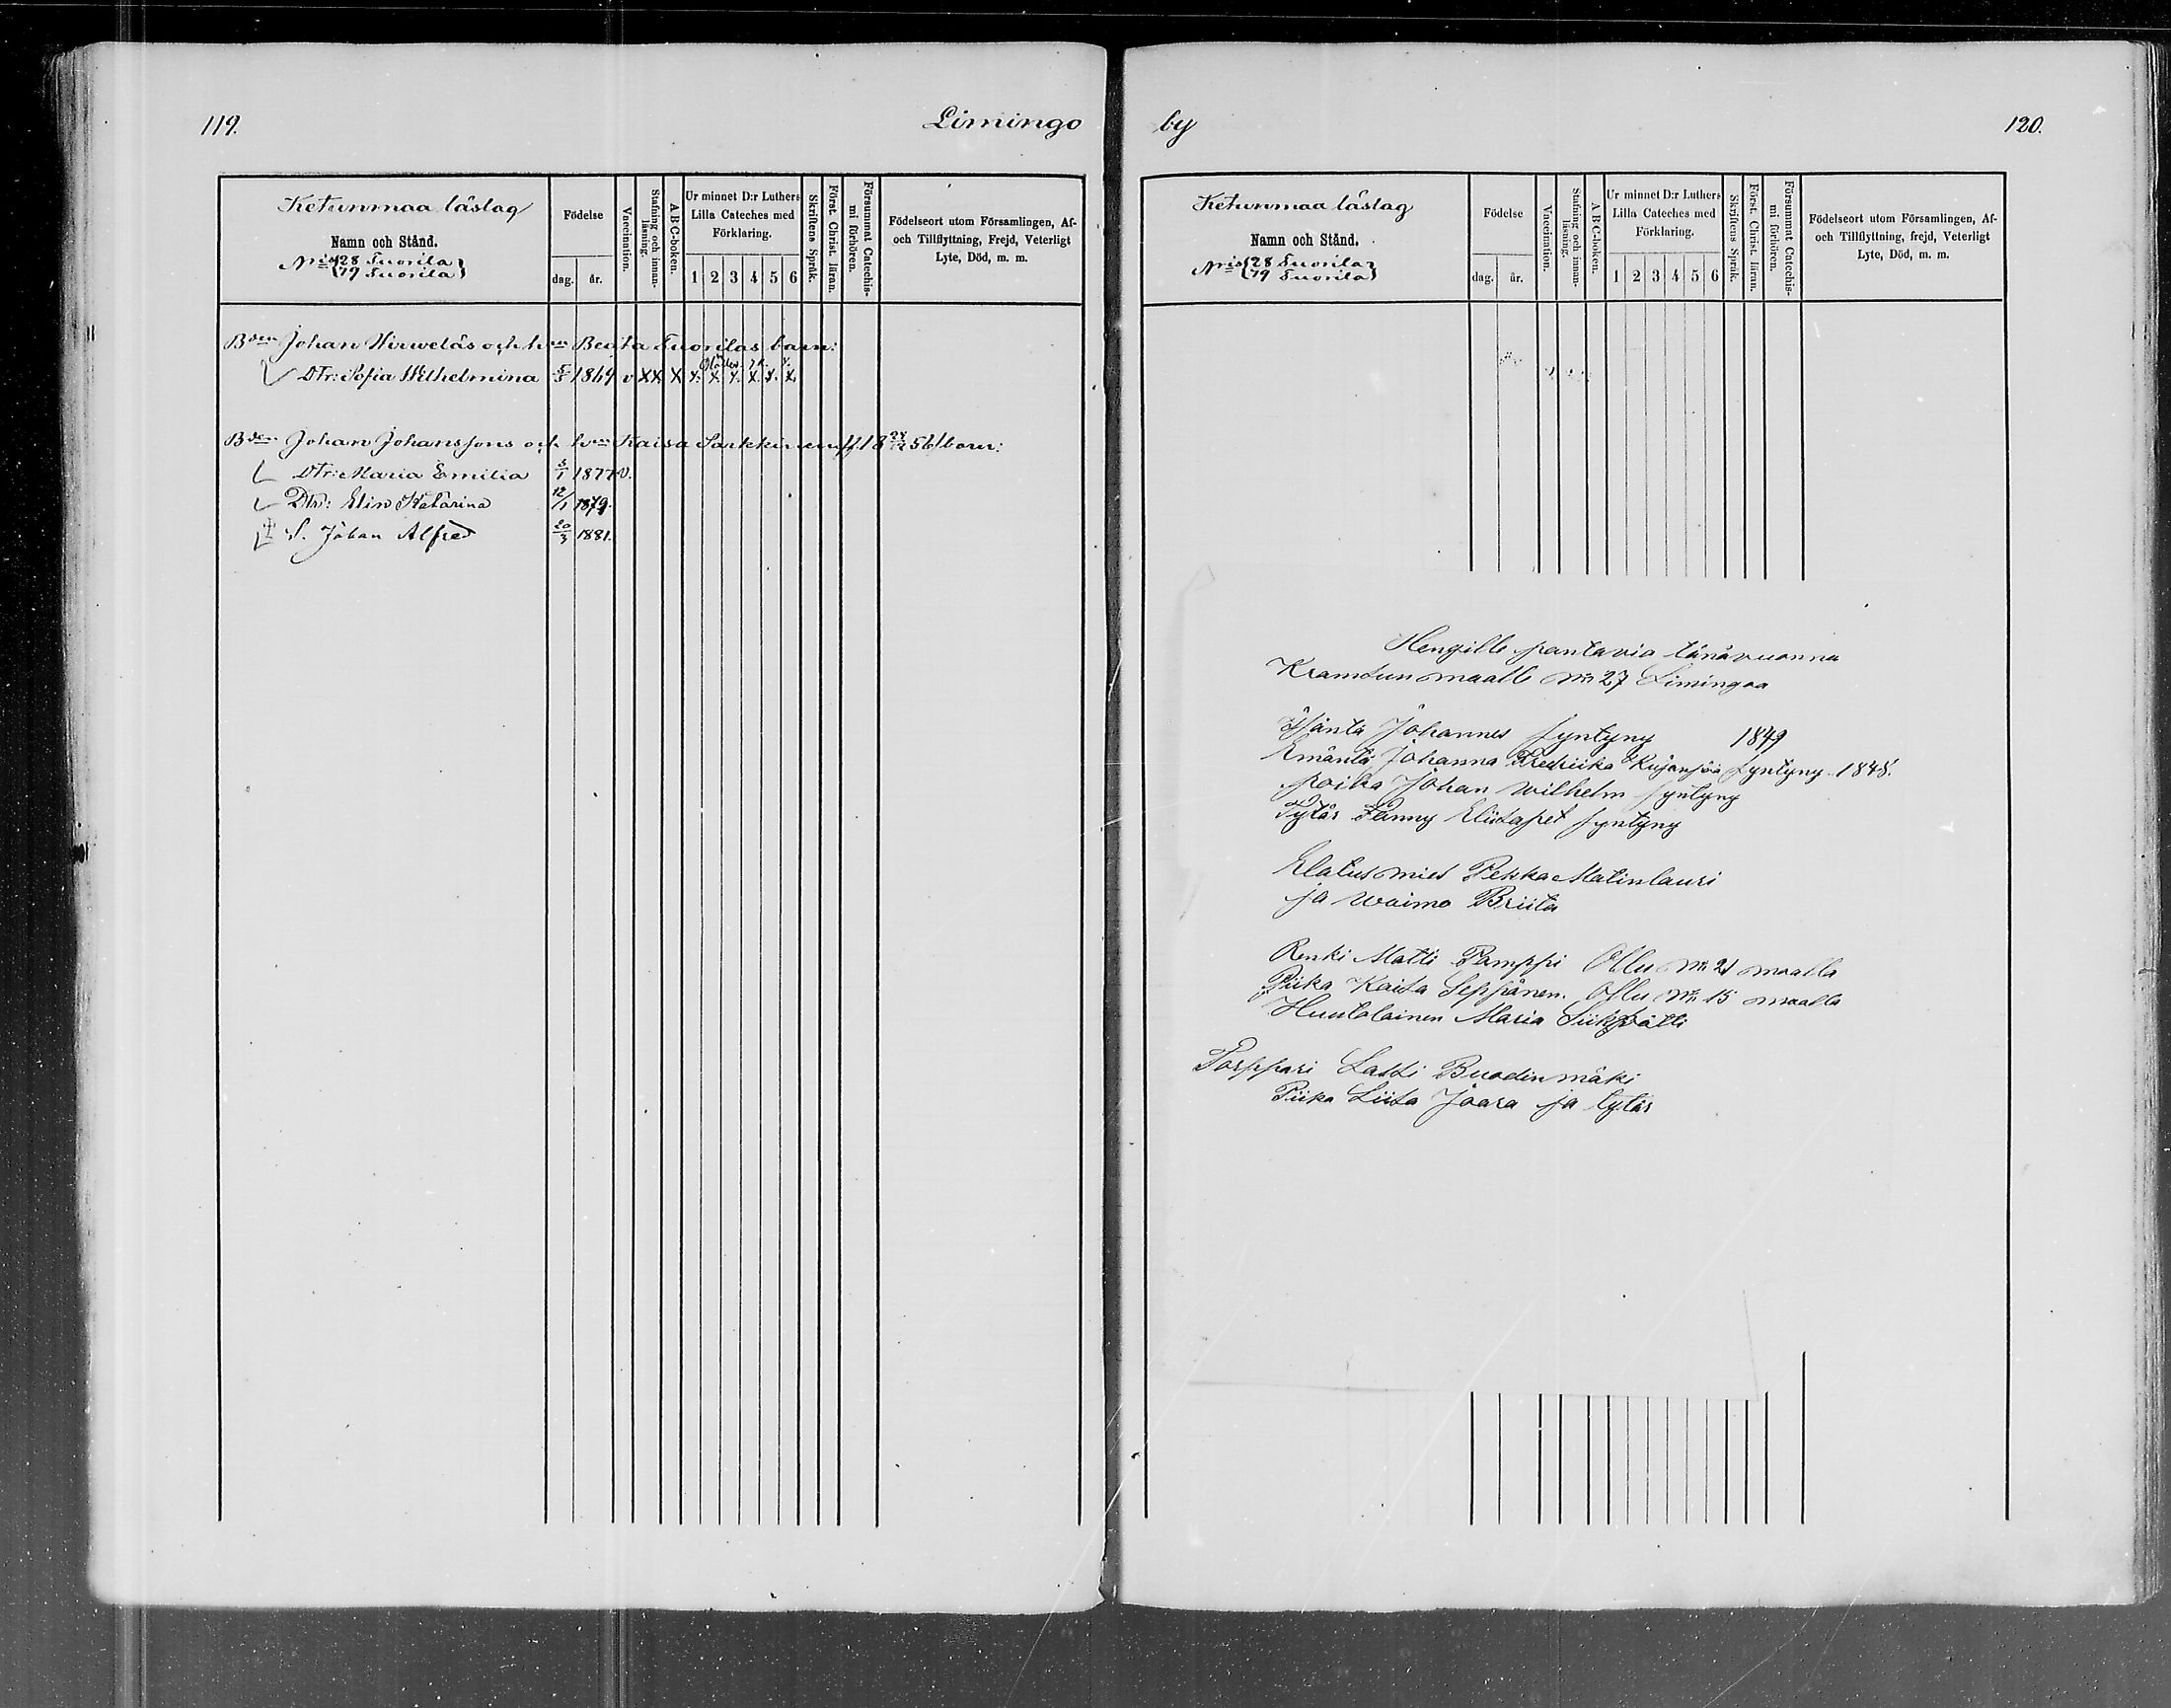 119.
Limingo
Ketunmaa läslag
Namn och Stånd.
N:ris 28 Tuorila
79 Tuorila
Födelse
dag.
år.
Vaccination.
Stafning och innan-
läsning.
A B C-boken.
Ur minnet D:r Luthers
Lilla Cateches med
Förklaring.
1 2 3 4 5 6
Skriftens Språk.
Först. Christ. läran.
Försummat Catechis-
mi förhören.
Födelseort utom Församlingen, Af-
och Tillflyttning, Frejd, Veterligt
Lyte, Död, m. m.
Bden Johan Wirwelås och h:un Beata Tuorilas barn:
Dtr: Sofia Wilhelmina 5/5 1869 v X X X X. X. X. X. X. X.
Bden Johan Johanssons och h:un Kaisa Sarkkinen barn:
Dtr: Maria Emilia 5/1 1877 v.
Dtr: Elin Katarina 12/1 1879.
S. Johan Alfred 20/3 1881.
by
120.
Ketunmaa läslag
Namn och Stånd.
N:ris 28 Tuorila
79 Tuorila
Födelse
dag.
år.
Vaccination.
Stafning och innan-
läsning.
A B C-boken.
Ur minnet D:r Luthers
Lilla Cateches med
Förklaring.
1 2 3 4 5 6
Skriftens Språk.
Först. Christ. läran.
Försummat Catechis-
mi förhören.
Födelseort utom Församlingen, Af-
och Tillflyttning, frejd, Veterligt
Lyte, Död, m. m.
Hengille pantavia tänävuonna
Kramsun maalle N:o 27 Limingaa
Isäntä Johannes syntyny 1849
Emäntä Johanna Fredriika syntyny 1848.
poika Johan Wilhelm syntyny
Tytär Fanny Eliisapet syntyny
Elatus mies Pekka Matinlauri
ja waimo Briita
Renki Matti Pamppi Ollu N:o 21 maalla
Piika Kaisa Seppänen. Ollu N:o 15 maalla
Huutolainen Maria
Torppari Lassi Buodinmäki
Piika Liisa Jaara ja tytär